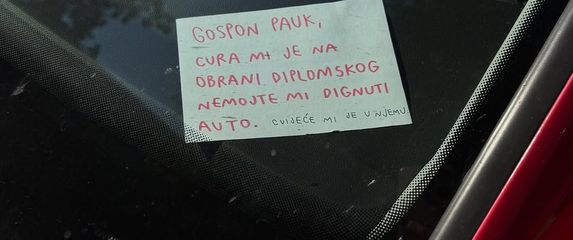 GOSPON PAUK,
CURA MI JE NA
OBRANI DIPLOMSKOG
NEMOJTE MI DIGNUTI
AUTO. CVIJEĆE MI JE U NJEMU